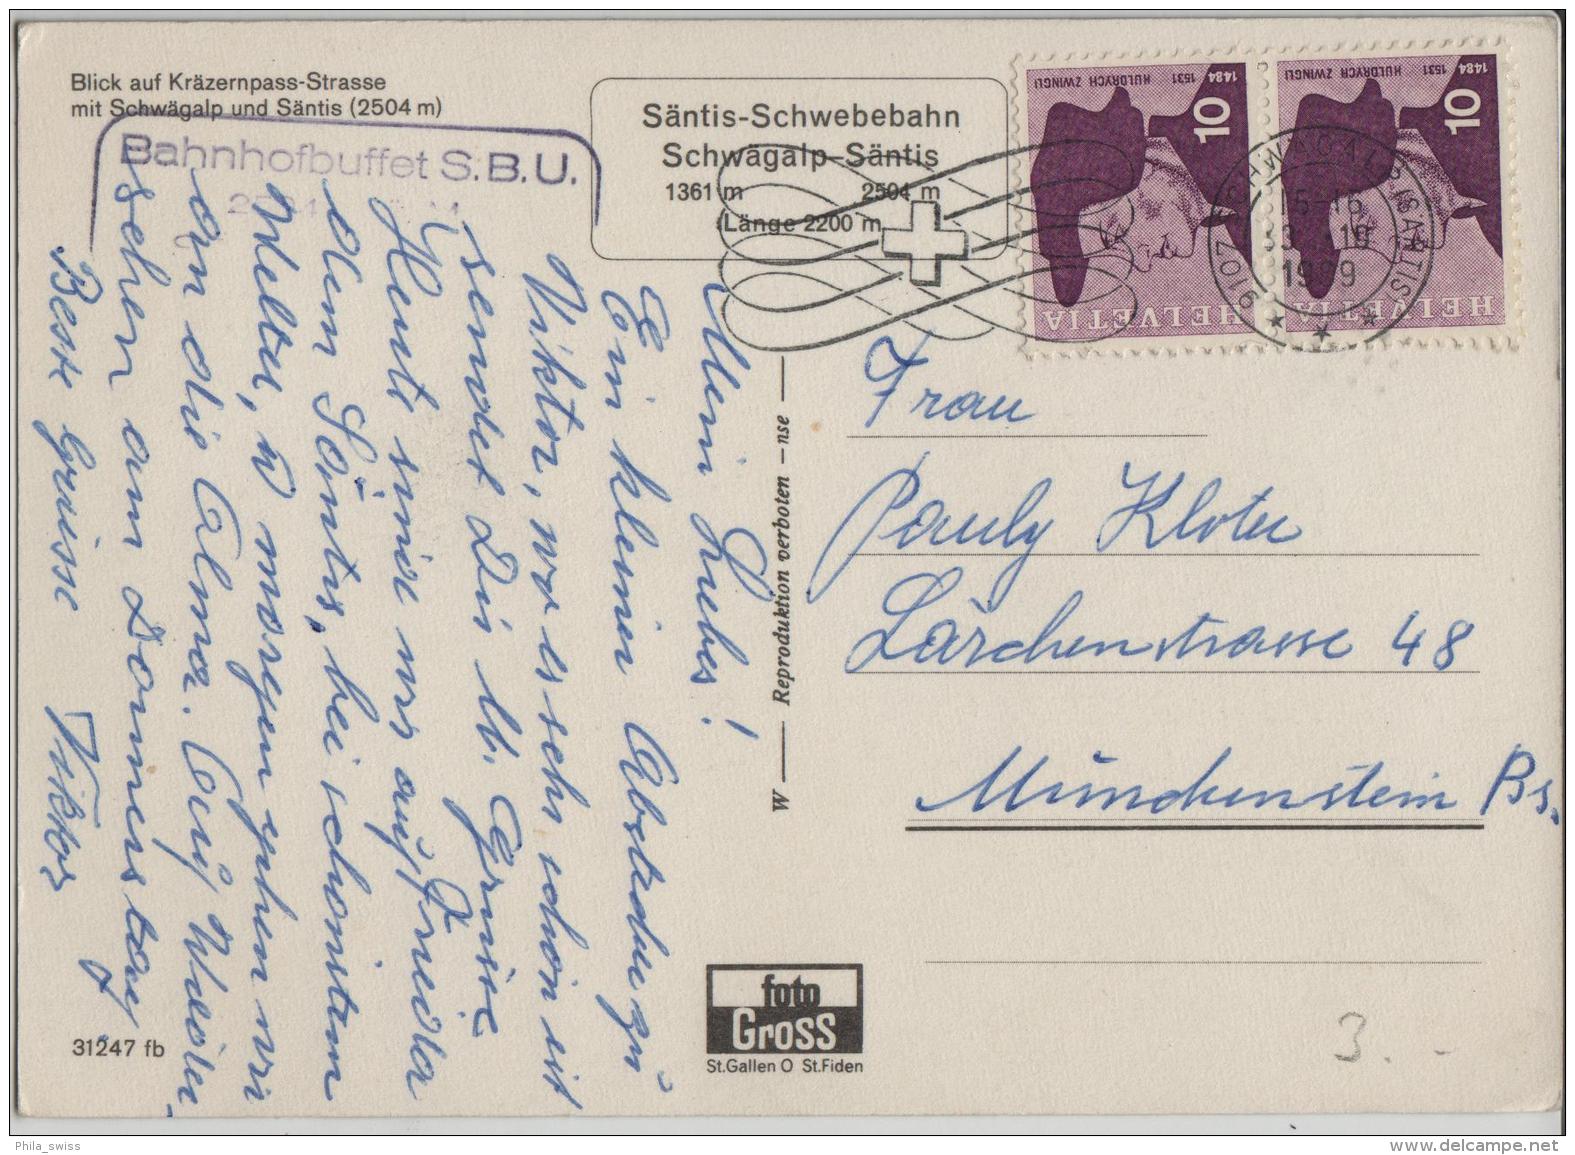 Blick auf Kräzernpass-Strasse
mit Schwägalp und Säntis (2504 m)
Bahnhofbuffet S.B.U.
Säntis-Schwebebahn
Schwägalp-Säntis
1361 m 2504 m
Länge 2200 m
HELVETIA
10
HULDRYCH ZWINGLI
1484 1531
HELVETIA
10
HULDRYCH ZWINGLI
1484 1531
9107 SCHWÄGALP (SÄNTIS)
1999
Mein Liebes!
Ein kleiner Abstecher zu
Viktor, wo es sehr schön ist
sendet Dir lb. Grüsse
Heute sind wir auf
dem Säntis, bei schönstem
Wetter, u morgen gehen wir
an die Olma. Auf Wieder
sehen am Donnerstag
Beste Grüsse Viktor
W — Reproduktion verboten – nse
Frau
Pauly Kloter
Lärchenstrasse 48
Münchenstein Bs.
foto
Gross
St.Gallen O St.Fiden
31247 fb
3.-
Phila_swiss
www.delcampe.net